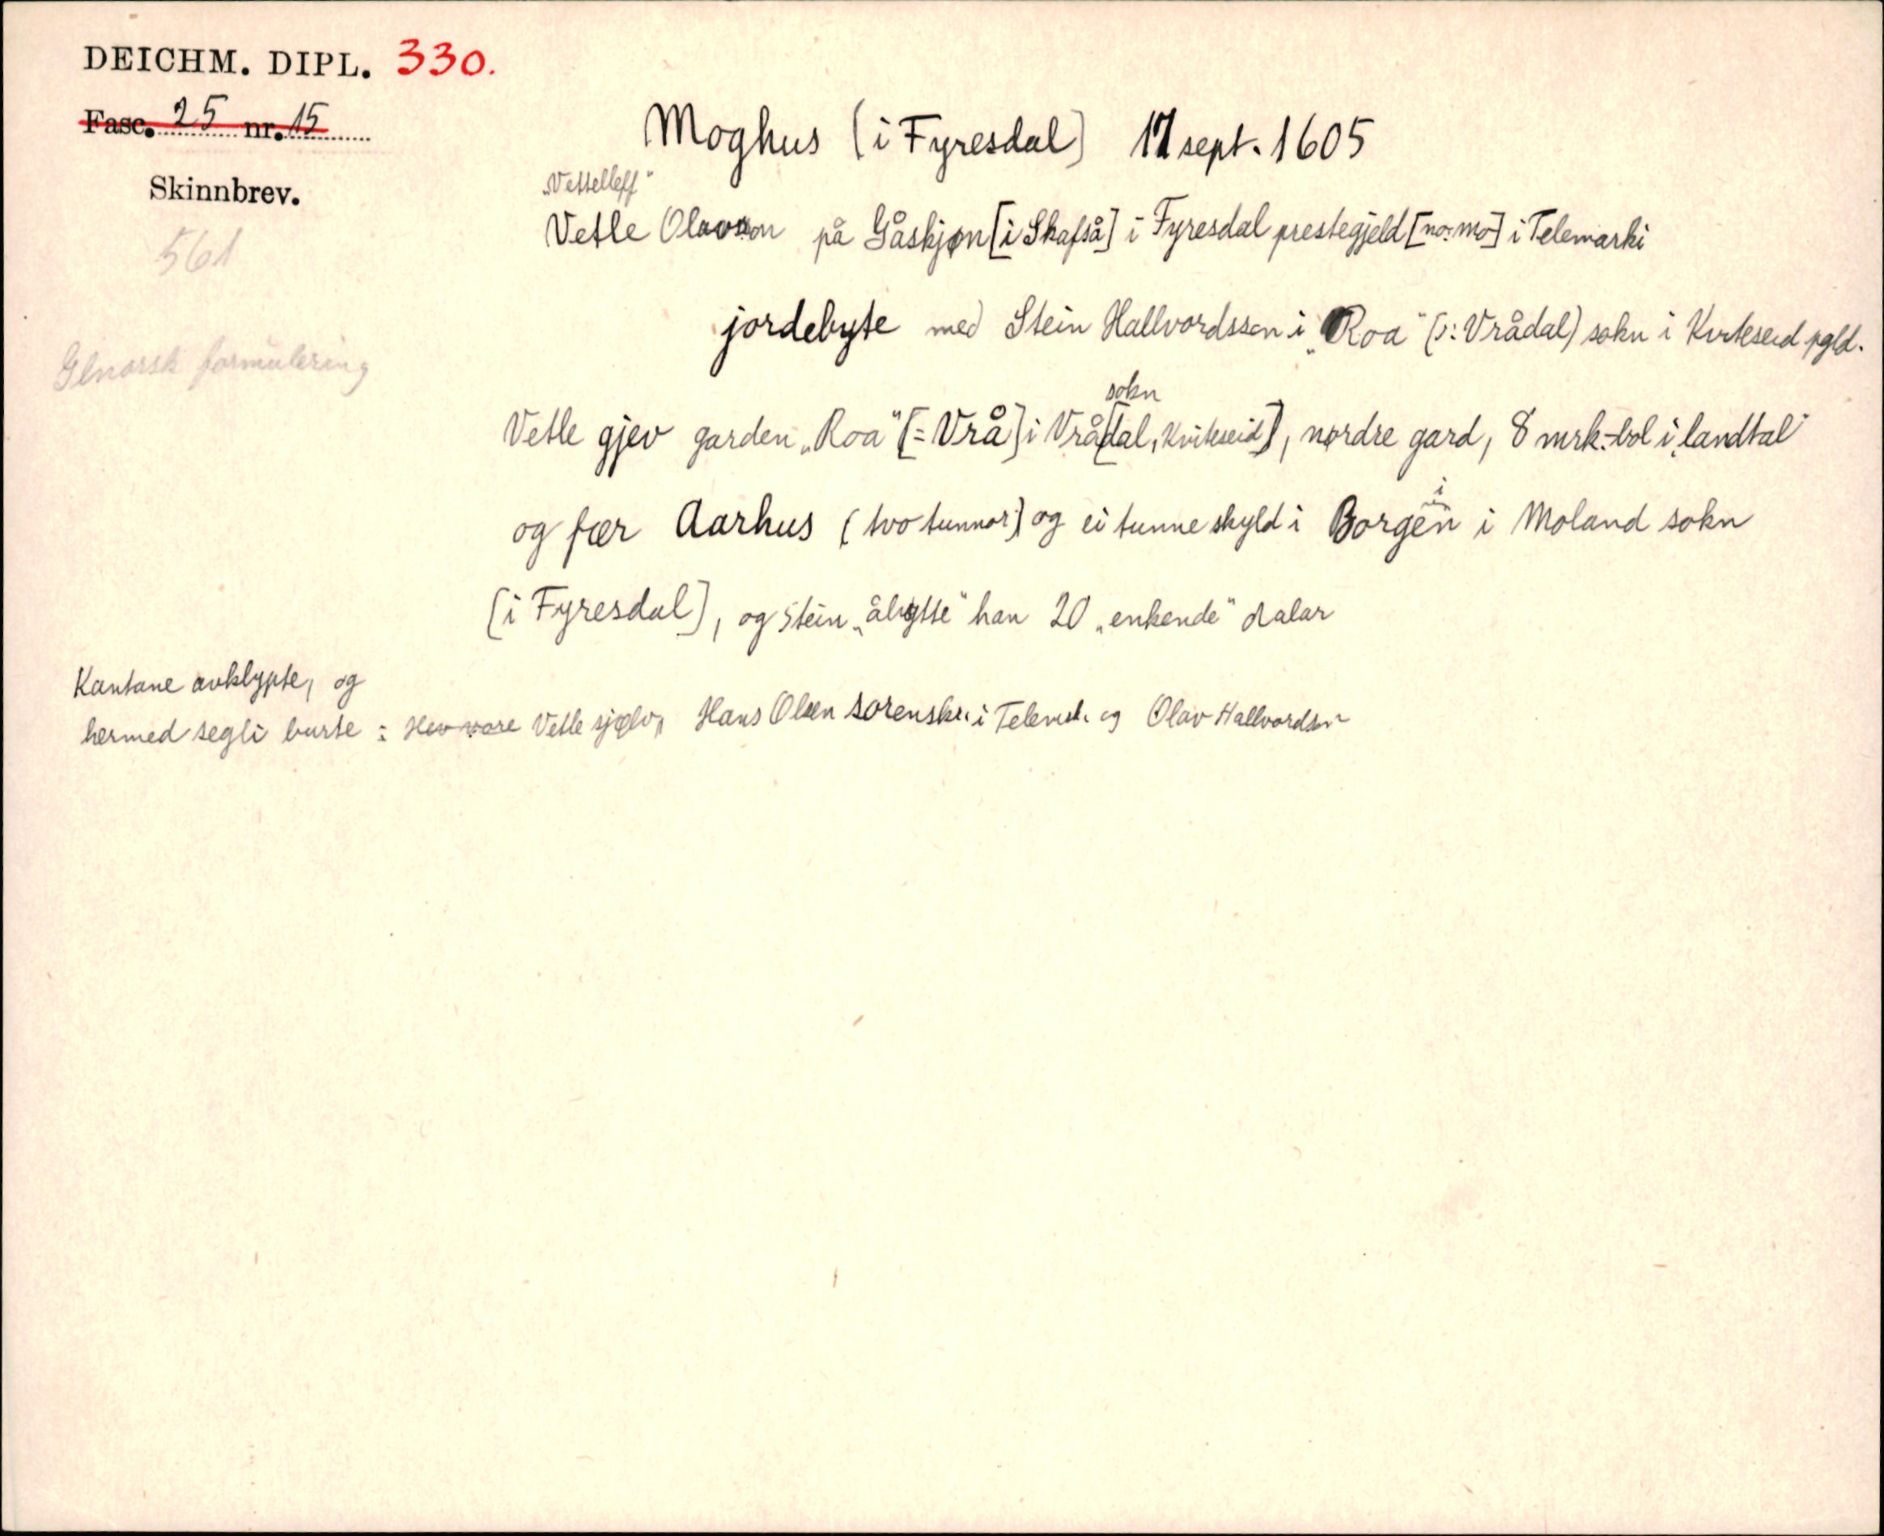 DEICHM. DIPL. 330.
Fasc. 25 nr. 15
Skinnbrev.
561
Glnorsk formulering
Moghus (i Fyresdal) 17 sept. 1605
„Vettelleff"
Vetle Olavson på Gåskjøn [i Skafså] i Fyresdal prestegjeld [no: Mo] i Telemarki
jordebyte med Stein Hallvordsson i „Roa" (ɔ: Vrådal) sokn i Kviteseid pgld.
sokn
Vetle gjev garden „Roa" [= Vrå] i Vrå[dal, Kviteseid], nordre gard, 8 mrk.-bol i „landtal"
og fær Aarhus (two tunnor) og ei tunne skyld i Borgen i Moland sokn
i
[i Fyresdal], og Stein „åbytte" han 20 „enkende" dalar
Kantane avklypte, og
hermed segli burte : Hev vore Vetle sjølv, Hans Olsen sorenskr. i Telemk. og Olav Hallvordsn